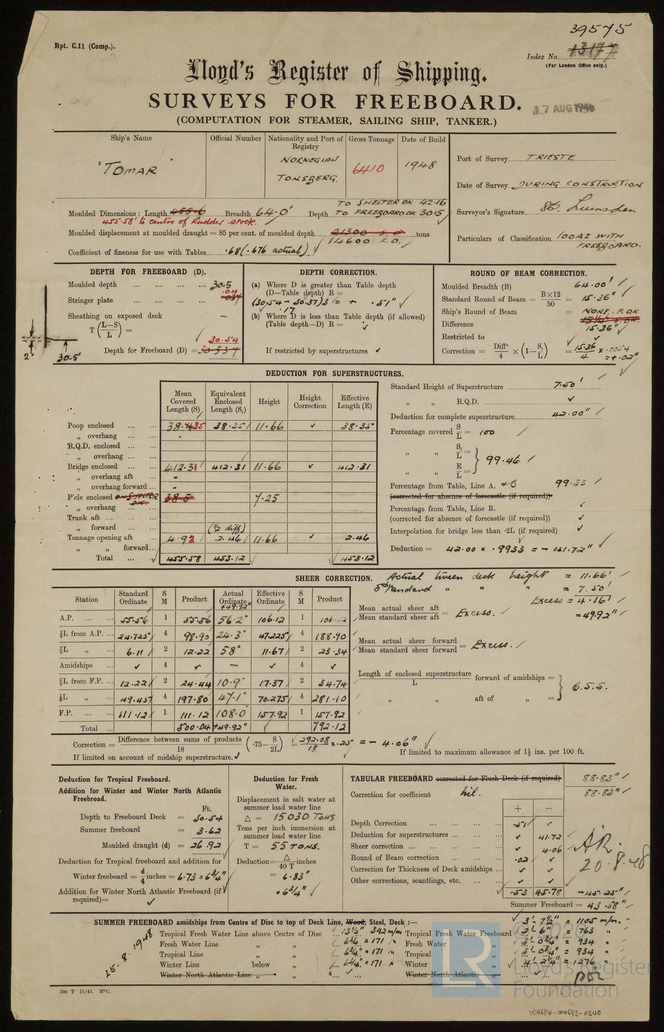 39575
Rpt. C.11 (Comp.).
Index No. 13177
(For London Office only.)
Lloyd's Register of Shipping.
SURVEYS FOR FREEBOARD.
(COMPUTATION FOR STEAMER, SAILING SHIP, TANKER.)
17 AUG 1948
Ship's Name Official Number Nationality and Port of Registry Gross Tonnage Date of Build
"TOMAR" NORWEGIAN TONSBERG. 6410 1948
Port of Survey TRIESTE
Date of Survey DURING CONSTRUCTION
Surveyor's Signature
Particulars of Classification 100A1 WITH FREEBOARD.
Moulded Dimensions: Length Breadth 64.0' Depth TO SHELTER DK 42.16 TO FREEBOARD DK 30.5
455.58' to centre of Rudder stock.
Moulded displacement at moulded draught = 85 per cent. of moulded depth 21300 S.D. tons
14600 F.D.
Coefficient of fineness for use with Tables .68 (.676 actual)
DEPTH FOR FREEBOARD (D).
Moulded depth ... 30.5
Stringer plate ... .04
Sheathing on exposed deck —
T (L—S/L) =
Depth for Freeboard (D) = 30.54
30.5'
DEPTH CORRECTION.
(a) Where D is greater than Table depth
(D—Table depth) R =
(30.54 - 30.37) 3 = + .51"
.17
(b) Where D is less than Table depth (if allowed)
(Table depth—D) R = ✓
If restricted by superstructures ✓
ROUND OF BEAM CORRECTION.
Moulded Breadth (B) 64.00'
Standard Round of Beam = B×12/50 = 15.36"
Ship's Round of Beam = NONE. F.DK
Difference 15.36"
Restricted to
Correction = Diff/4 × (1—S₁/L) = 15.36/4 × .0054
= +.02"
DEDUCTION FOR SUPERSTRUCTURES.
Mean Covered Length (S) Equivalent Enclosed Length (S₁) Height Height Correction Effective Length (E)
Poop enclosed 38.35 38.35 11.66 ✓ 38.35
" overhang -
R.Q.D. enclosed
" overhang
Bridge enclosed 412.31 412.31 11.66 ✓ 412.31
" overhang aft -
" overhang forward -
F'cle enclosed 38.5 7.25
" overhang
Trunk aft
" forward (½ diff)
Tonnage opening aft 4.92 2.46 11.66 ✓ 2.46
" " forward
Total 455.58 453.12 453.12
Standard Height of Superstructure 7.50'
" " R.Q.D. ✓
Deduction for complete superstructure 42.00"
Percentage covered S/L = 100
" " S₁/L
" " E/L } = 99.46
Percentage from Table, Line A. 99.33
(corrected for absence of forecastle (if required))
Percentage from Table, Line B.
(corrected for absence of forecastle (if required)) ✓
Interpolation for bridge less than ·2L (if required) ✓
Deduction = 42.00 × .9933 = - 41.72"
SHEER CORRECTION.
Station Standard Ordinate S M Product Actual Ordinate Effective Ordinate S M Product
+49.92"
A.P. 55.56 1 55.56 56.2" 106.12 1 106.12
⅙L from A.P. 24.725 4 98.90 24.3" 47.225 4 188.90
⅓L " 6.11 2 12.22 5.8" 11.67 2 23.34
Amidships ✓ 4 ✓ — ✓ 4 ✓
⅓L from F.P. 12.22 2 24.44 10.9" 17.37 2 34.74
⅙L " 49.45 4 197.80 47.1" 70.275 4 281.10
F.P. 111.12 1 111.12 108.0" 157.92 1 157.92
Total 500.04 +49.92" 792.12
Actual tween deck height = 11.66'
Standard " " = 7.50'
Excess = 4.16'
= 49.92"
Mean actual sheer aft
Mean standard sheer aft = Excess.
Mean actual sheer forward
Mean standard sheer forward = Excess.
Length of enclosed superstructure
L forward of amidships =
" " aft of " = } C.S.S.
Correction = Difference between sums of products/18 (·75—S/2L) = 292.08/18 × .25 = - 4.06"
If limited on account of midship superstructure. ✓
If limited to maximum allowance of 1½ ins. per 100 ft.
Deduction for Tropical Freeboard.
Addition for Winter and Winter North Atlantic Freeboard.
Ft.
Depth to Freeboard Deck = 30.54
Summer freeboard = 3.62
Moulded draught (d) = 26.92
Deduction for Tropical freeboard and addition for
Winter freeboard = d/4 inches = 6.73 = 6¾"
Addition for Winter North Atlantic Freeboard (if required) = ✓
Deduction for Fresh Water.
Displacement in salt water at summer load water line
△ = 15030 TONS
Tons per inch immersion at summer load water line
T = 55 TONS.
Deduction = △/40 T inches
= 6.83"
= 6¾"
TABULAR FREEBOARD corrected for Flush Deck (if required) 88.83"
Correction for coefficient Nil. 88.83"
+ —
Depth Correction .51 ✓
Deduction for superstructures ✓ 41.72
Sheer correction ✓ 4.06
Round of Beam correction .02 ✓
Correction for Thickness of Deck amidships ✓ ✓
Other corrections, scantlings, etc. ✓ ✓
.53 45.78 -45.25"
Summer Freeboard = 43.58"
20.8.48
25.8.1948
SUMMER FREEBOARD amidships from Centre of Disc to top of Deck Line, Wood, Steel, Deck:— 3' 7½" = 1105 m/m.
Tropical Fresh Water Line above Centre of Disc 13½" 342 m/m Tropical Fresh Water Freeboard 2' 6" = 763
Fresh Water Line " " 6¾" = 171 Fresh Water " 3' 0¾" = 934
Tropical Line " " 6¾" = 171 Tropical " 3' 0¾" = 934
Winter Line below " 6¾" = 171 Winter " 4' 2¼" = 1276
Winter North Atlantic Line Winter North Atlantic
5m T 11/41. MʸC.
LR
Lloyd's Register
Foundation